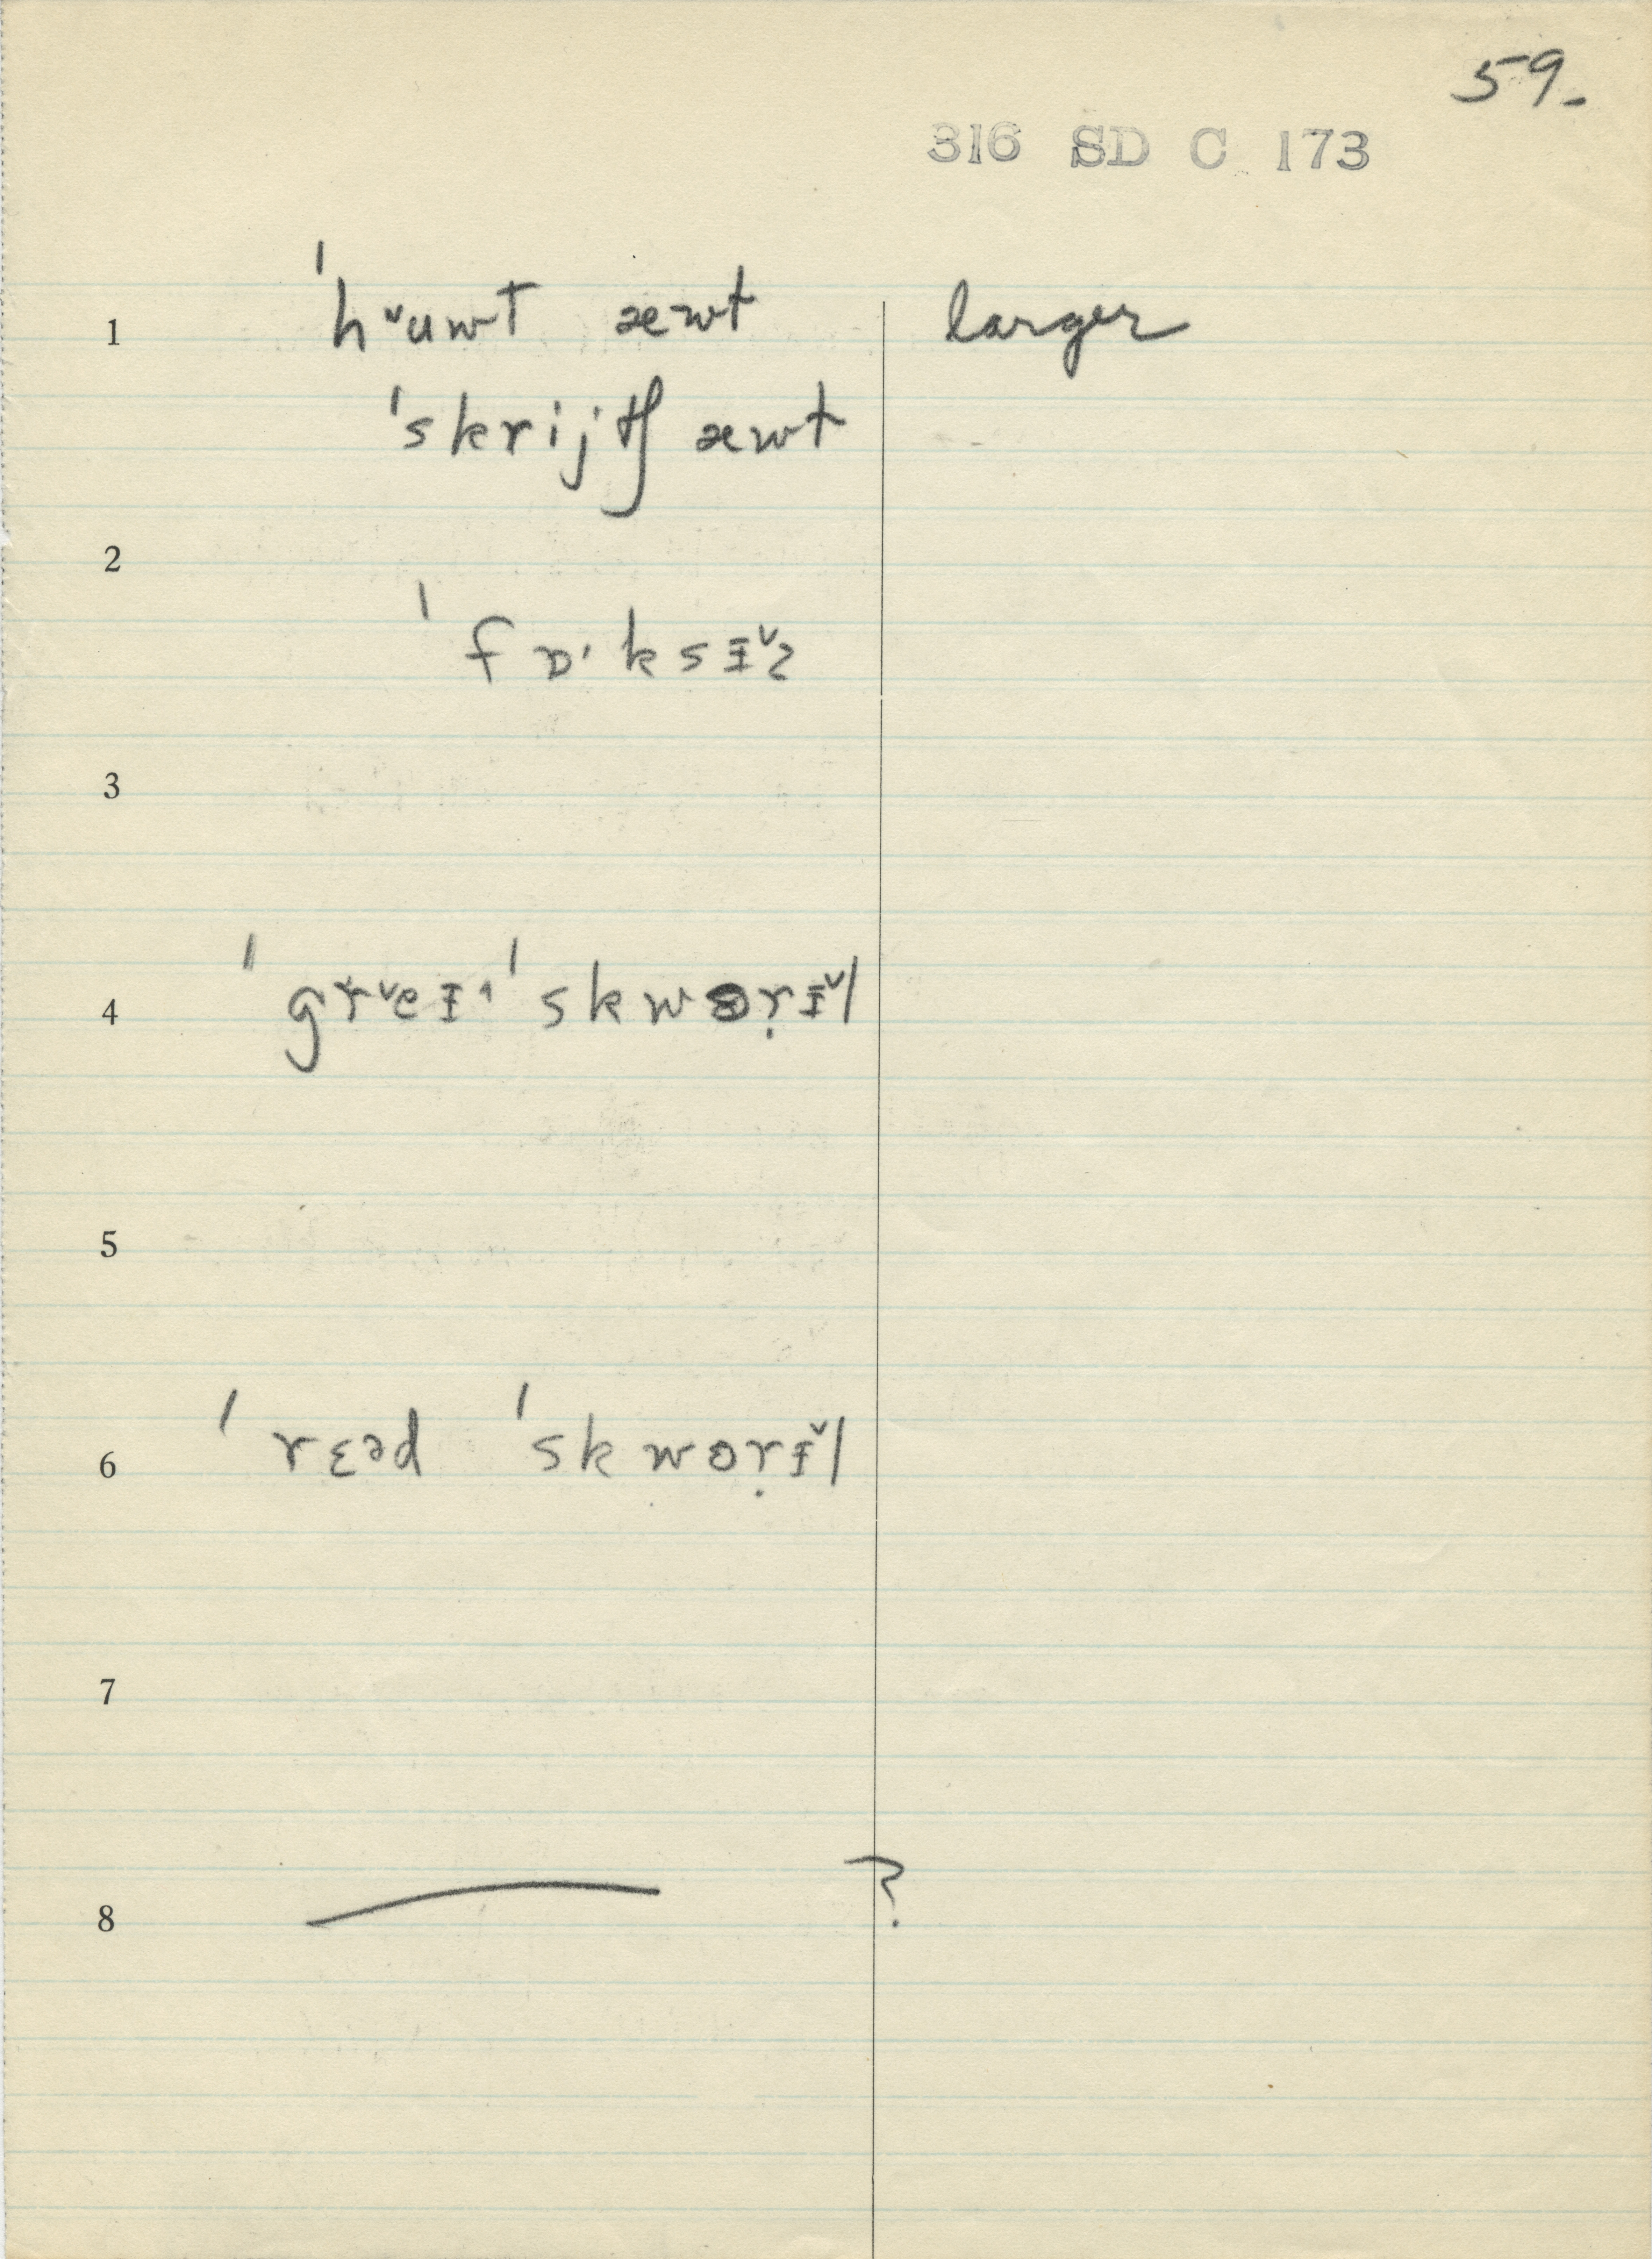 59.
316 SD C 173
1 ˈhᵛuwt æwt larger
ˈskrijtʃ æwt
2
ˈfɒ·ksɪ̵ˇz
3
4 ˈgrᵛeɪ· ˈskwɵṛɪ̵ˇl
5
6 ˈrɛəd ˈskwɵṛɪ̵ˇl
7
8 — ?